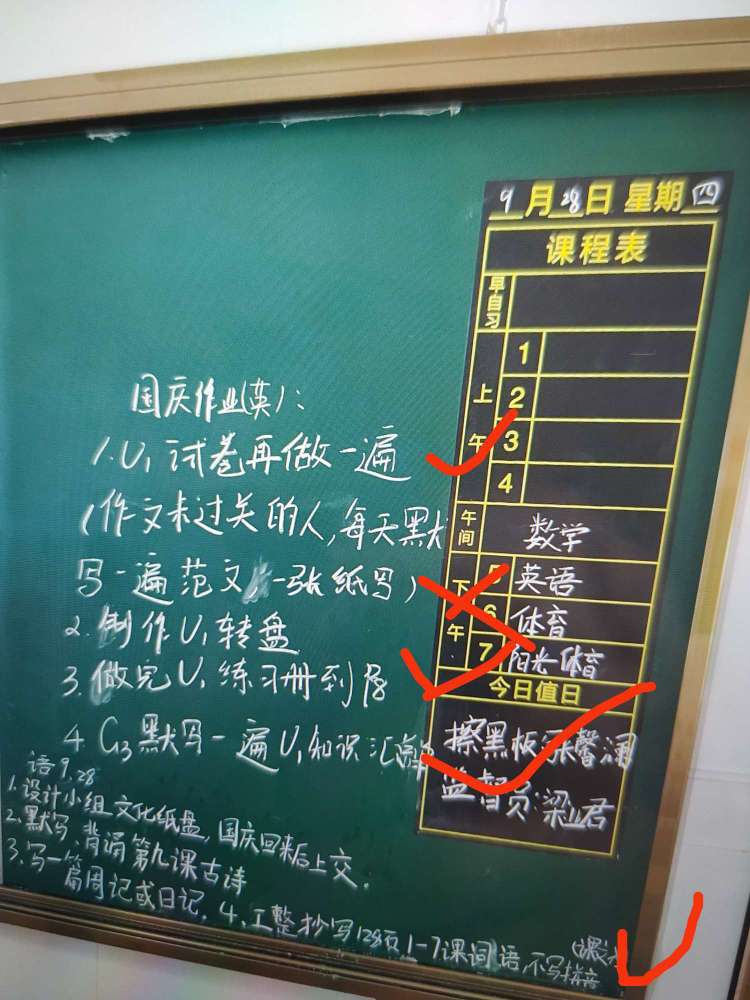 国庆作业(英):
1.U₁试卷再做一遍
(作文未过关的人,每天默
写一遍范文 一张纸写)
2.制作U₁转盘
3.做完U₁练习册到P8
4.C₃默写一遍U₁知识汇总
语9.28
1.设计小组文化纸盘,国庆回来后上交.
2.默写、背诵第九课古诗
3.写一篇周记或日记. 4.工整抄写128页1-7课词语,不写拼音
9月28日 星期四
课程表
早自习
上午
1
2
3
4
午间 数学
下午
5 英语
6 体育
7 阳光体育
今日值日
擦黑板:张馨澜
监督员:梁业君